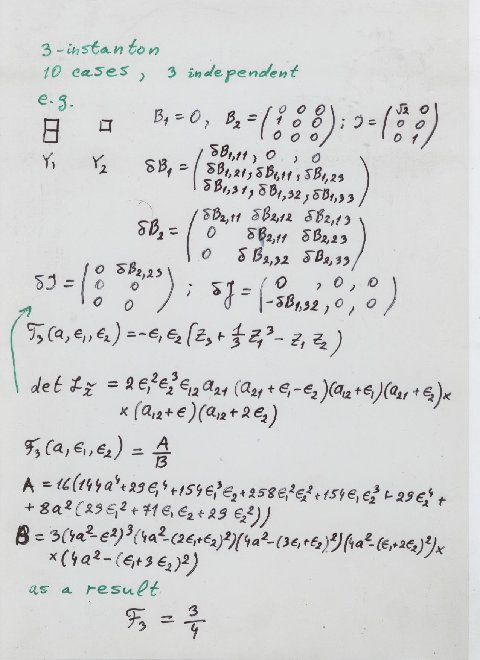 3-instanton
10 cases, 3 independent
e.g.
B₁ = 0, B₂ = (0 0 0; 1 0 0; 0 0 0); I = (√2 0; 0 0; 0 1)
Y₁ Y₂
δB₁ = (δB₁,₁₁, 0, 0; δB₁,₂₁, δB₁,₁₁, δB₁,₂₃; δB₁,₃₁, δB₁,₃₂, δB₁,₃₃)
δB₂ = (δB₂,₁₁ δB₂,₁₂ δB₂,₁₃; 0 δB₂,₁₁ δB₂,₂₃; 0 δB₂,₃₂ δB₂,₃₃)
δI = (0 δB₂,₂₃; 0 0; 0 0); δJ = (0, 0, 0; -δB₁,₃₂, 0, 0)
F₃(a, ϵ₁, ϵ₂) = -ϵ₁ϵ₂(Z₃ + 1/3 Z₁³ - Z₁ Z₂)
det ℒx̃ = 2ϵ₁²ϵ₂³ϵ₁₂ a₂₁ (a₂₁ + ϵ₁ - ϵ₂)(a₁₂ + ϵ₁)(a₂₁ + ϵ₂)×
×(a₁₂ + ϵ)(a₁₂ + 2ϵ₂)
F₃(a, ϵ₁, ϵ₂) = A/B
A = 16(144a⁴ + 29ϵ₁⁴ + 154ϵ₁³ϵ₂ + 258ϵ₁²ϵ₂² + 154ϵ₁ϵ₂³ + 29ϵ₂⁴ +
+ 8a²(29ϵ₁² + 71ϵ₁ϵ₂ + 29ϵ₂²))
B = 3(4a² - ϵ²)³(4a² - (2ϵ₁+ϵ₂)²)(4a² - (3ϵ₁+ϵ₂)²)(4a² - (ϵ₁+2ϵ₂)²)×
×(4a² - (ϵ₁+3ϵ₂)²)
as a result
F₃ = 3/4